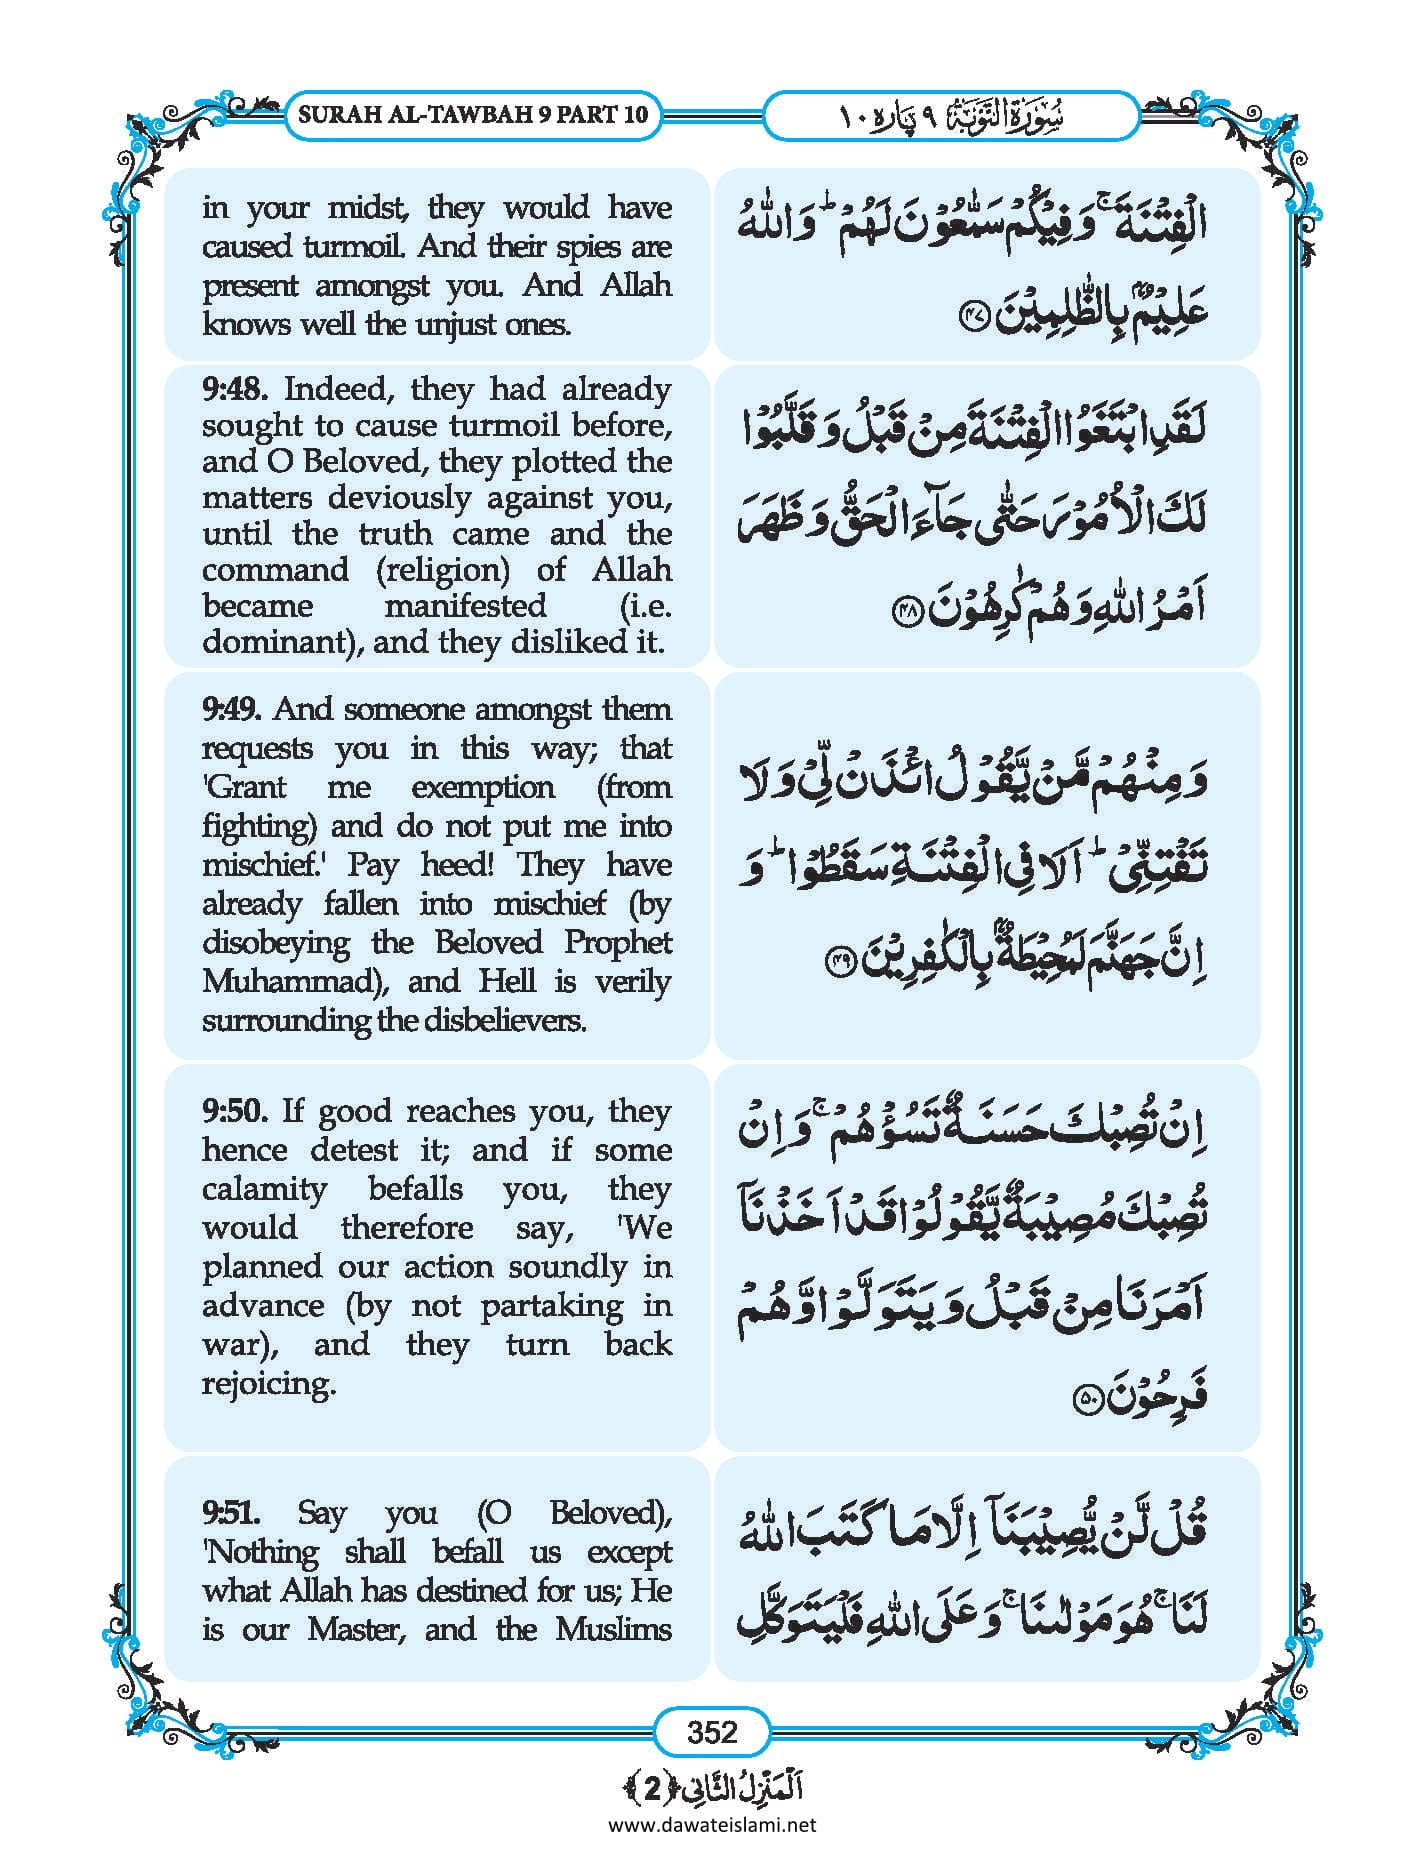 SURAH AL-TAWBAH 9 PART 10
سُوْرَةُ التَّوْبَة ٩ پارہ ١٠
in your midst, they would have
caused turmoil. And their spies are
present amongst you. And Allah
knows well the unjust ones.
الْفِتْنَةَ ۚ وَ فِیْكُمْ سَمّٰعُوْنَ لَهُمْ ؕ وَ اللّٰهُ
عَلِیْمٌۢ بِالظّٰلِمِیْنَ ﴿۴۷﴾
9:48. Indeed, they had already
sought to cause turmoil before,
and O Beloved, they plotted the
matters deviously against you,
until the truth came and the
command (religion) of Allah
became manifested (i.e.
dominant), and they disliked it.
لَقَدِ ابْتَغَوُا الْفِتْنَةَ مِنْ قَبْلُ وَ قَلَّبُوْا
لَكَ الْاُمُوْرَ حَتّٰى جَآءَ الْحَقُّ وَ ظَهَرَ
اَمْرُ اللّٰهِ وَ هُمْ كٰرِهُوْنَ ﴿۴۸﴾
9:49. And someone amongst them
requests you in this way; that
'Grant me exemption (from
fighting) and do not put me into
mischief.' Pay heed! They have
already fallen into mischief (by
disobeying the Beloved Prophet
Muhammad), and Hell is verily
surrounding the disbelievers.
وَ مِنْهُمْ مَّنْ یَّقُوْلُ ائْذَنْ لِّیْ وَ لَا
تَفْتِنِّیْ ؕ اَلَا فِی الْفِتْنَةِ سَقَطُوْا ؕ وَ
اِنَّ جَهَنَّمَ لَمُحِیْطَةٌۢ بِالْكٰفِرِیْنَ ﴿۴۹﴾
9:50. If good reaches you, they
hence detest it; and if some
calamity befalls you, they
would therefore say, 'We
planned our action soundly in
advance (by not partaking in
war), and they turn back
rejoicing.
اِنْ تُصِبْكَ حَسَنَةٌ تَسُؤْهُمْ ۚ وَ اِنْ
تُصِبْكَ مُصِیْبَةٌ یَّقُوْلُوْا قَدْ اَخَذْنَاۤ
اَمْرَنَا مِنْ قَبْلُ وَ یَتَوَلَّوْا وَّ هُمْ
فَرِحُوْنَ ﴿۵۰﴾
9:51. Say you (O Beloved),
'Nothing shall befall us except
what Allah has destined for us; He
is our Master, and the Muslims
قُلْ لَّنْ یُّصِیْبَنَاۤ اِلَّا مَا كَتَبَ اللّٰهُ
لَنَا ۚ هُوَ مَوْلٰىنَا ۚ وَ عَلَى اللّٰهِ فَلْیَتَوَكَّلِ
352
اَلْمَنْزِلُ الثَّانِی ﴿2﴾
www.dawateislami.net